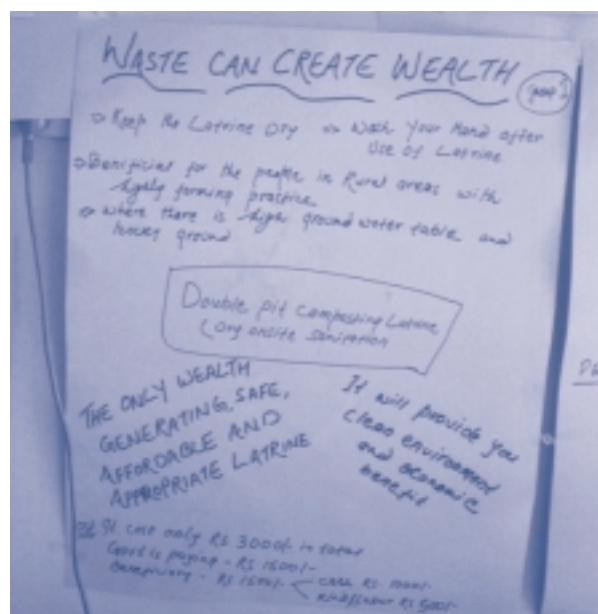 WASTE CAN CREATE WEALTH
Group 1
⇒ Keep the Latrine Dry ⇒ Wash Your Hand after
Use of Latrine
⇒ Beneficial for the people in Rural areas with
highly farming practice
⇒ where there is high ground water table and
ground
Double pit Composting Latrine
(Dry onsite sanitation
THE ONLY WEALTH
GENERATING, SAFE,
AFFORDABLE AND
APPROPRIATE LATRINE
It will provide you
clean environment
and economic
benefit
It cost only Rs 3000/- in total
Govt is paying - Rs 1500/-
Beneficiary - Rs 1500/- < cash Rs 1000/-
Rs 500/-